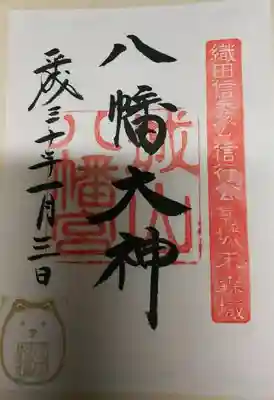 織田信秀公信行公末森城
八幡大神
城山
八幡宮
平成三十年一月三日